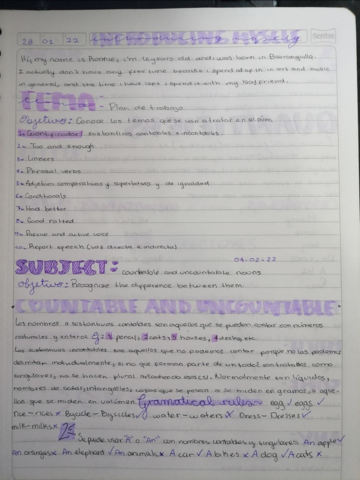 28 01 22 INTRODUCING MYSELF
Hi, my name is          I'm 16 years old and was born in Barranquilla.
I actually don't have any free time because I spend          in art and music
in general, and the time I have left I spend it with my boyfriend.
TEMA - Plan de trabajo
Objetivo: Conoce los temas que se van a tratar en el año.
1. Quantificadores sustantivos contables e incontables.
2. Too and enough
3. Linkers
4. Phrasal verbs
5. Adjetivos comparativos y superlativos y de igualdad
6. Conditionals
7. Had better
8.
9. Passive and active voice
10. Report speech (voz directa e indirecta)
04-02-22
SUBJECT: countable and uncountable nouns
Objetivo: Recognize the difference between them
COUNTABLE AND UNCOUNTABLE
Los nombres o sustantivos contables son aquellos que se pueden contar con números
naturales y enteros Ej: 1 pencil, 2 cats, 3 horses, 4 desks, etc.
Los sustantivos incontables son aquellos que no podemos contar, porque no los podemos
delimitar individualmente, si no que forman parte de un todo (son tratados como
singulares, no se hacen plural añadiendo es/s). Normalmente son líquidos,
nombres de              cosas que se pesan o se miden en gramos o aque-
llas que se miden en volúmen. Gramatical rules egg ✓ eggs ✓
rice - rices x Bicycle - Bicycles ✓ water - waters x Dress - Dresses ✓
milk - milks x 2
Se puede usar "A" o "An" con nombres contables y singulares. An apple ✓
An oranges x An elephant ✓ An animals x A car ✓ A bikes x A dog ✓ A cats x